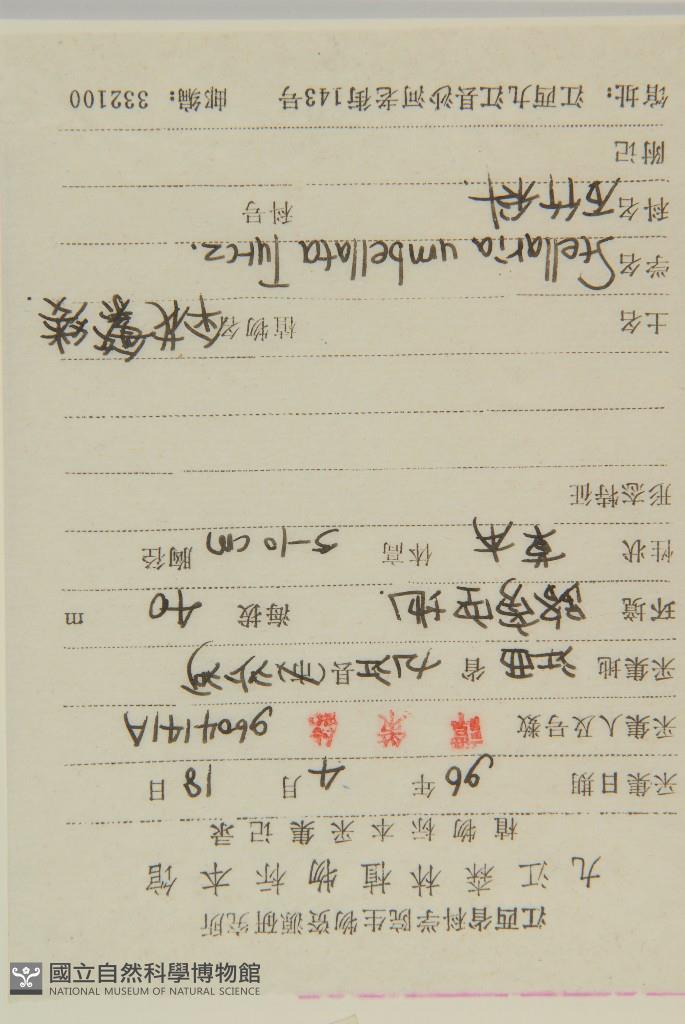 江西省科学院生物资源研究所
九江森林植物标本馆
植物标本采集记录
采集日期 96年4月18日
采集人及号数 譚策銘 9604141A
采集地 江西省九江县(市)沙河
环境 路旁空地. 海拔 40 m
性状 草本 体高 5-10cm 胸径
形态特征
土名 植物名 伞状繁缕.
学名 Stellaria umbellata Turcz.
科名 石竹科. 科号
附记
馆址：江西九江县沙河老街143号 邮编：332100
國立自然科學博物館
NATIONAL MUSEUM OF NATURAL SCIENCE